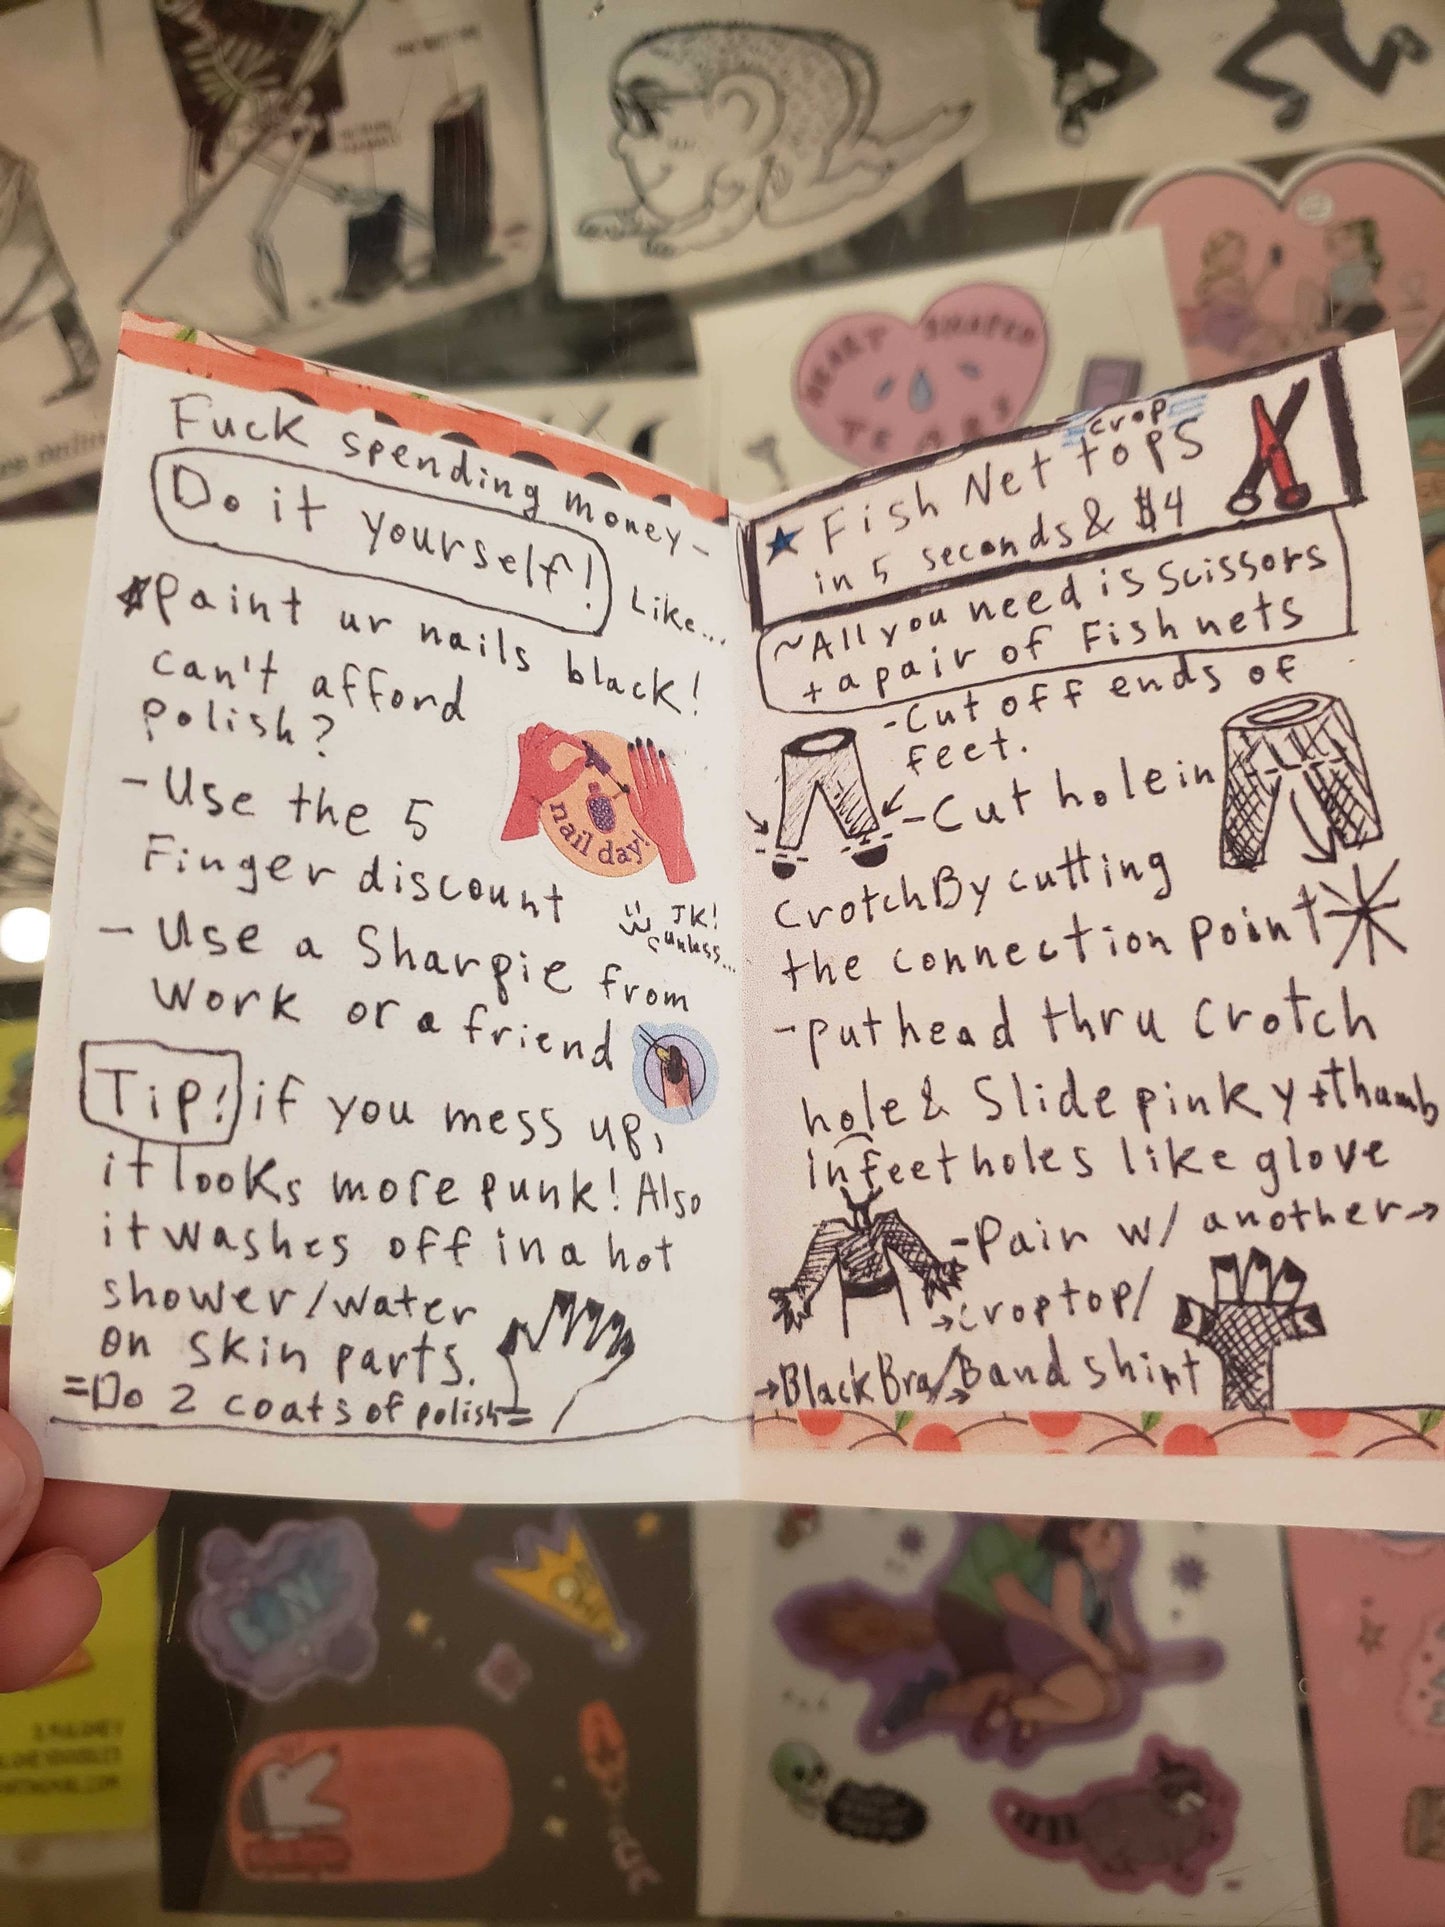 Fuck spending money-
Do it yourself!
Like...
Paint ur nails black!
can't afford
polish?
- Use the 5
Finger discount
JK!
unless...
- Use a Sharpie from
work or a friend
nail day!
Tip! if you mess up,
it looks more punk! Also
it washes off in a hot
shower/water
on skin parts.
=Do 2 coats of polish=
crop
★ Fish Net tops
in 5 seconds & $4
~All you need is scissors
+ a pair of Fishnets
-Cut off ends of
feet.
-Cut hole in
crotch By cutting
the connection point
-put head thru crotch
hole & Slide pinky + thumb
in feet holes like glove
-Pair w/ another→
→croptop/
→Black Bra/→Band shirt
HEART SHAPED
TEARS